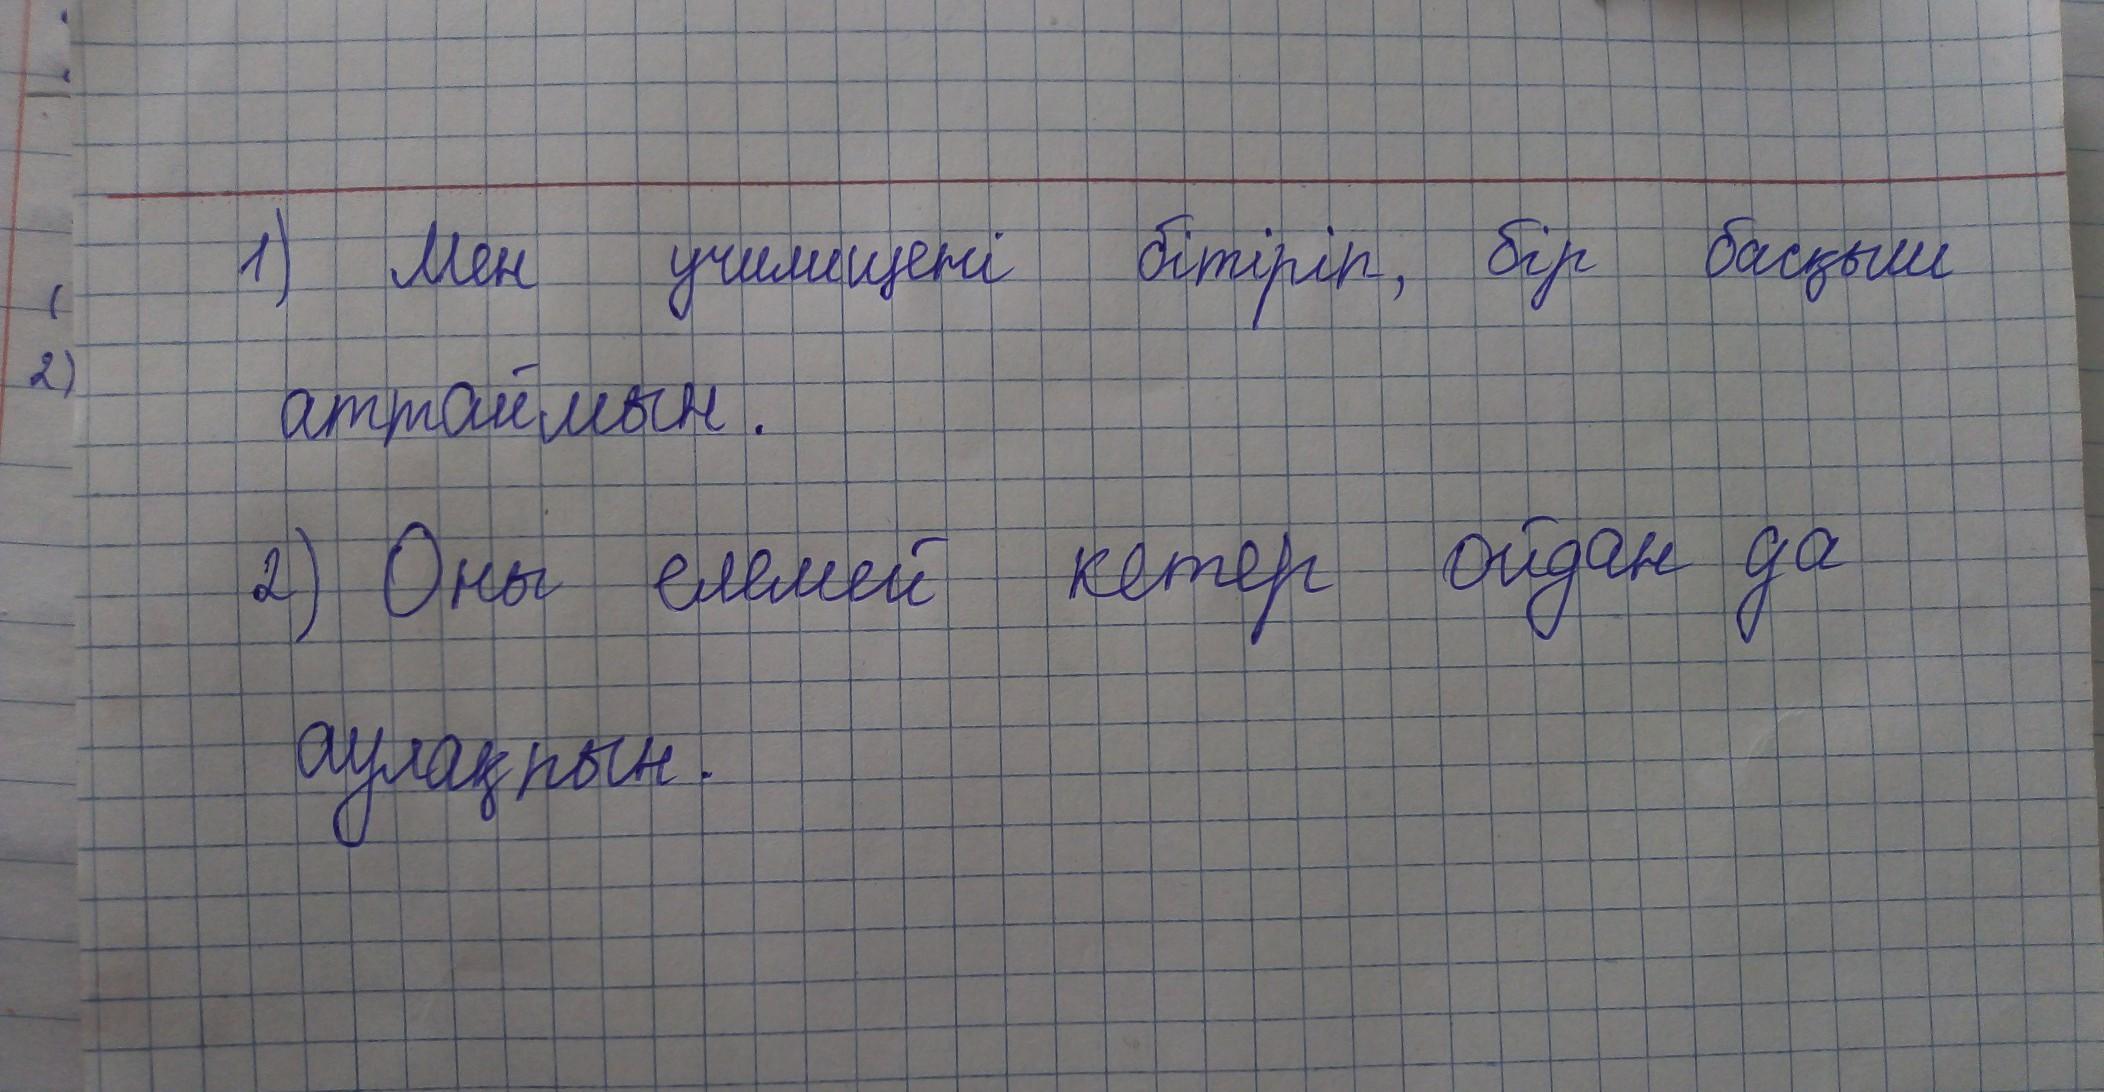 1) Мен училищені бітіріп, бір басқыш
2)
аттаймын.
2) Оны елемей кетер ойдан да
аулақпын.